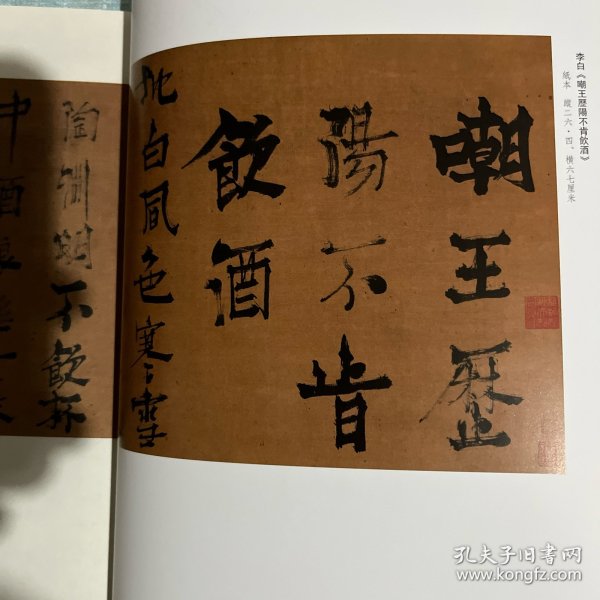 李白《嘲王歷陽不肯飲酒》
紙本 縱二六·四、橫六七厘米
嘲王歷
陽不肯
飲酒
地白風色寒雪
陶淵明不飲杯
中酒浪
孔夫子旧书网
www.kongfz.com